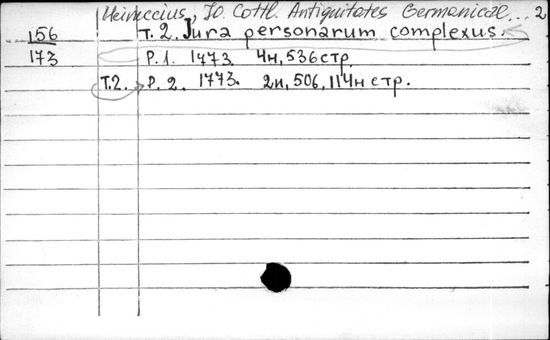 Heineccius, Io. Gottl. Antiquitates Germanicae... 2
156 т. 2. Jura personarum complexus.
173 P. 1. 1773 4н, 536 стр.
T.2. P. 2. 1773. 2н, 506, 114н стр.